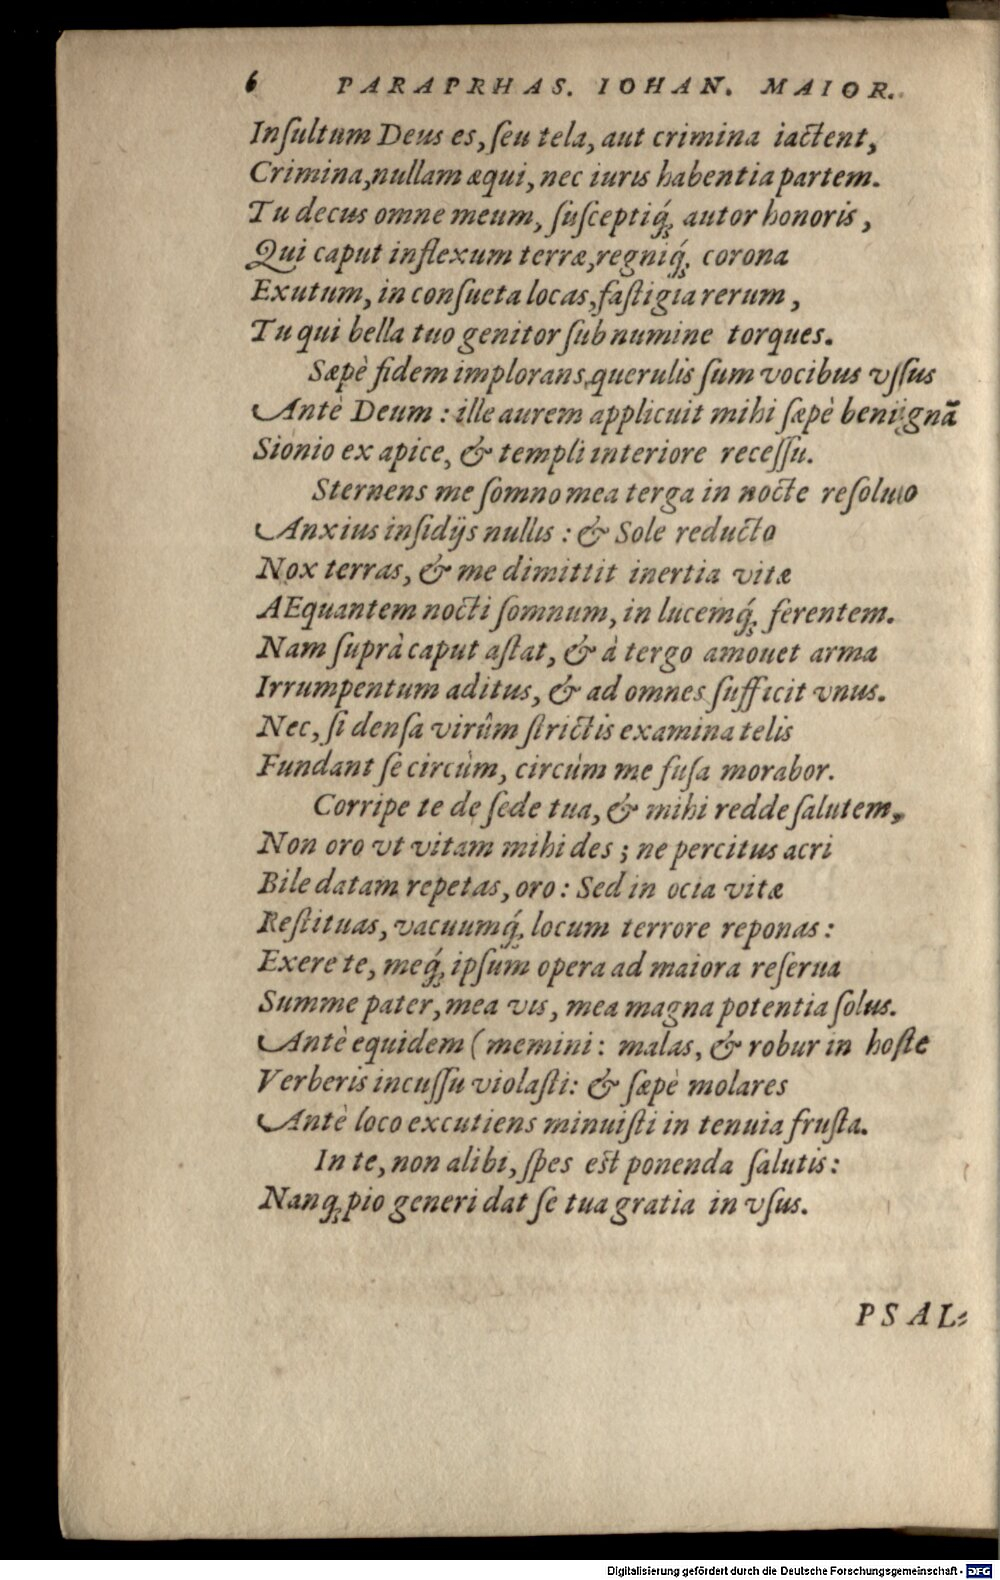 6 PARAPRHAS. IOHAN. MAIOR.
Inſultum Deus es, ſeu tela, aut crimina iactent,
Crimina, nullam æqui, nec iuris habentia partem.
Tu decus omne meum, ſuſceptiq́ꝫ autor honoris,
Qui caput inflexum terræ, regniq́ꝫ corona
Exutum, in conſueta locas, faſtigia rerum,
Tu qui bella tuo genitor ſub numine torques.
Sæpè fidem implorans, querulis ſum vocibus vſſus
Antè Deum: ille aurem applicuit mihi ſæpè beniignā
Sionio ex apice, & templi interiore receſſu.
Sternens me ſomno mea terga in nocte reſoluo
Anxius inſidijs nullis: & Sole reducto
Nox terras, & me dimittit inertia vitæ
AEquantem nocti ſomnum, in lucemq́ꝫ ferentem.
Nam ſuprà caput aſtat, & à tergo amouet arma
Irrumpentum aditus, & ad omnes ſufficit vnus.
Nec, ſi denſa virûm ſtrictis examina telis
Fundant ſe circùm, circùm me fuſa morabor.
Corripe te de ſede tua, & mihi redde ſalutem,
Non oro vt vitam mihi des; ne percitus acri
Bile datam repetas, oro: Sed in ocia vitæ
Reſtituas, vacuumq́ꝫ locum terrore reponas:
Exere te, meq́ꝫ ipſum opera ad maiora reſerua
Summe pater, mea vis, mea magna potentia ſolus.
Antè equidem (memini: malas, & robur in hoſte
Verberis incuſſu violaſti: & ſæpè molares
Antè loco excutiens minuiſti in tenuia fruſta.
In te, non alibi, ſpes eſt ponenda ſalutis:
Nanqꝫ pio generi dat ſe tua gratia in vſus.
PSAL⸗
Digitalisierung gefördert durch die Deutsche Forschungsgemeinschaft - DFG